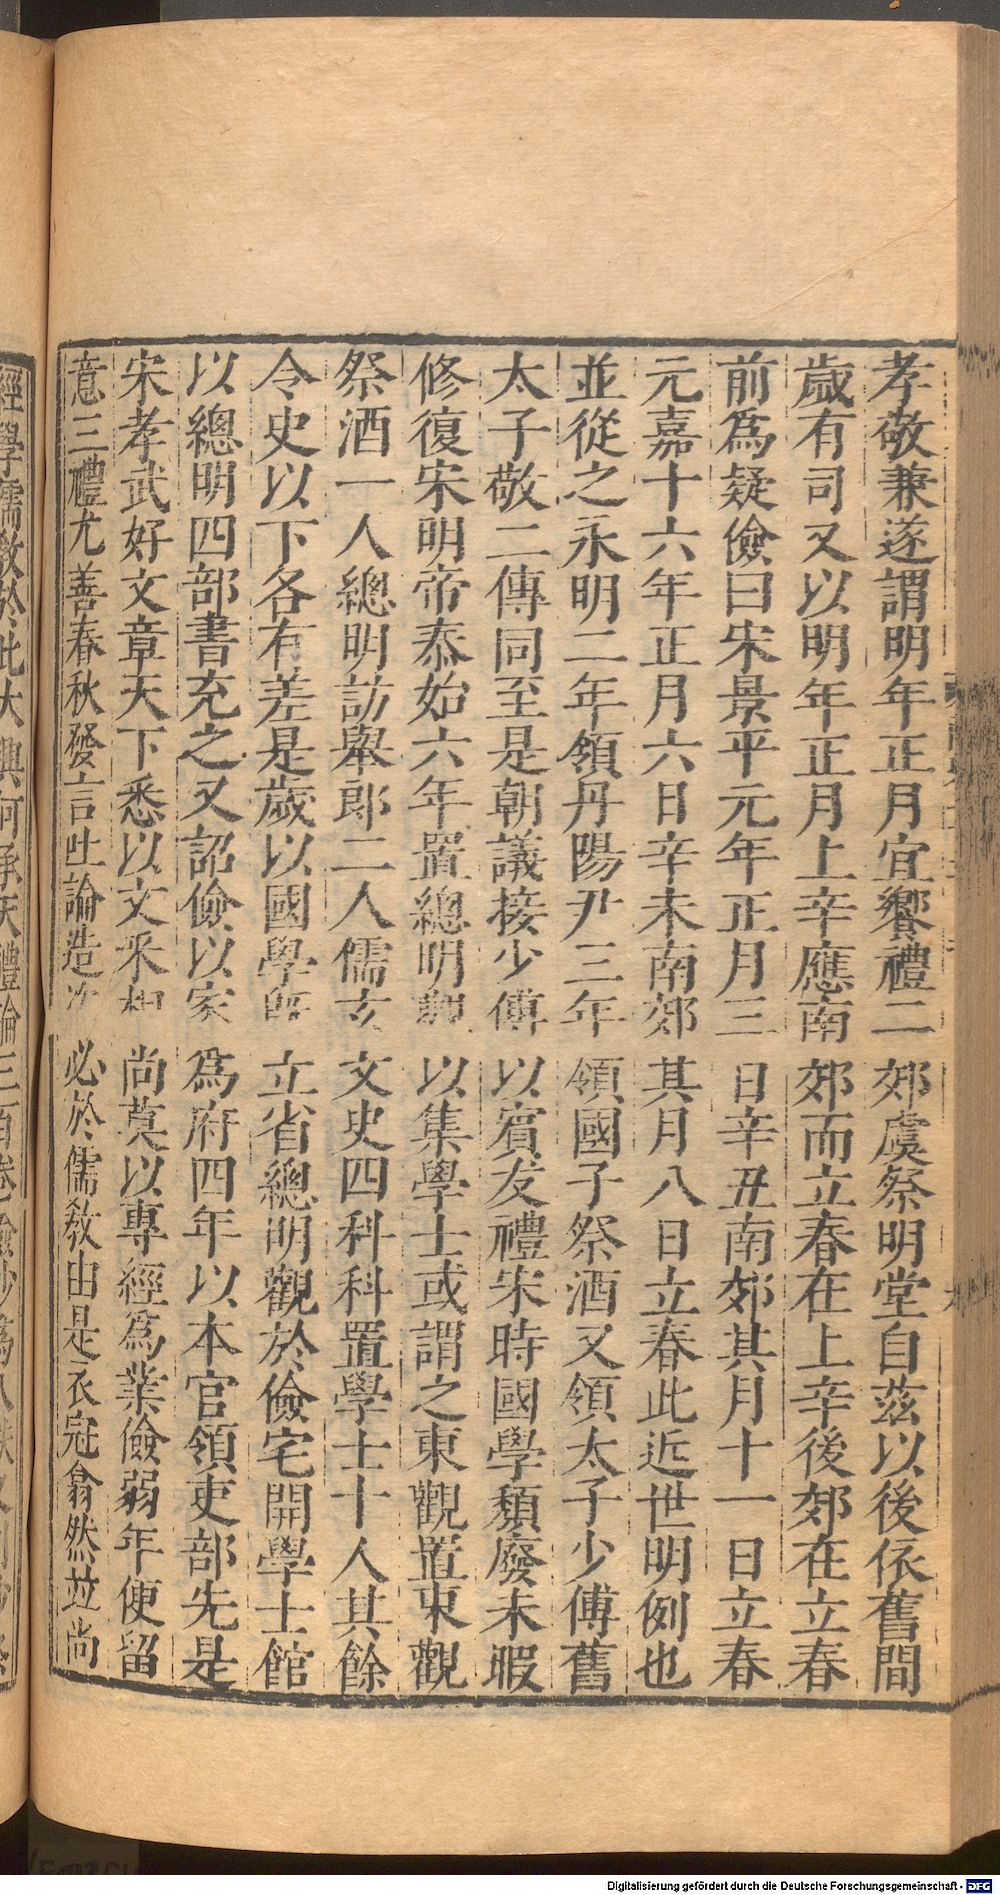 孝敬兼遂謂明年正月宜饗禮二郊虞祭明堂自茲以後依舊間
歲有司又以明年正月上辛應南郊而立春在上辛後郊在立春
前爲疑儉曰宋景平元年正月三日辛丑南郊其月十一日立春
元嘉十六年正月六日辛未南郊其月八日立春此近世明例也
並從之永明二年領丹陽尹三年領國子祭酒又領太子少傅舊
太子敬二傅同至是朝議接少傅以賓友禮宋時國學頹廢未暇
修復宋明帝泰始六年置總明觀以集學士或謂之東觀置東觀
祭酒一人總明訪舉郎二人儒玄文史四科科置學士十人其餘
令史以下各有差是歲以國學旣立省總明觀於儉宅開學士館
以總明四部書充之又詔儉以家爲府四年以本官領吏部先是
宋孝武好文章天下悉以文采相尚莫以專經爲業儉弱年便留
意三禮尤善春秋發言吐論造次必於儒敎由是衣冠翕然並尚
經學儒敎於此大興何承天禮論三百卷儉抄爲八帙又
Digitalisierung gefördert durch die Deutsche Forschungsgemeinschaft - DFG